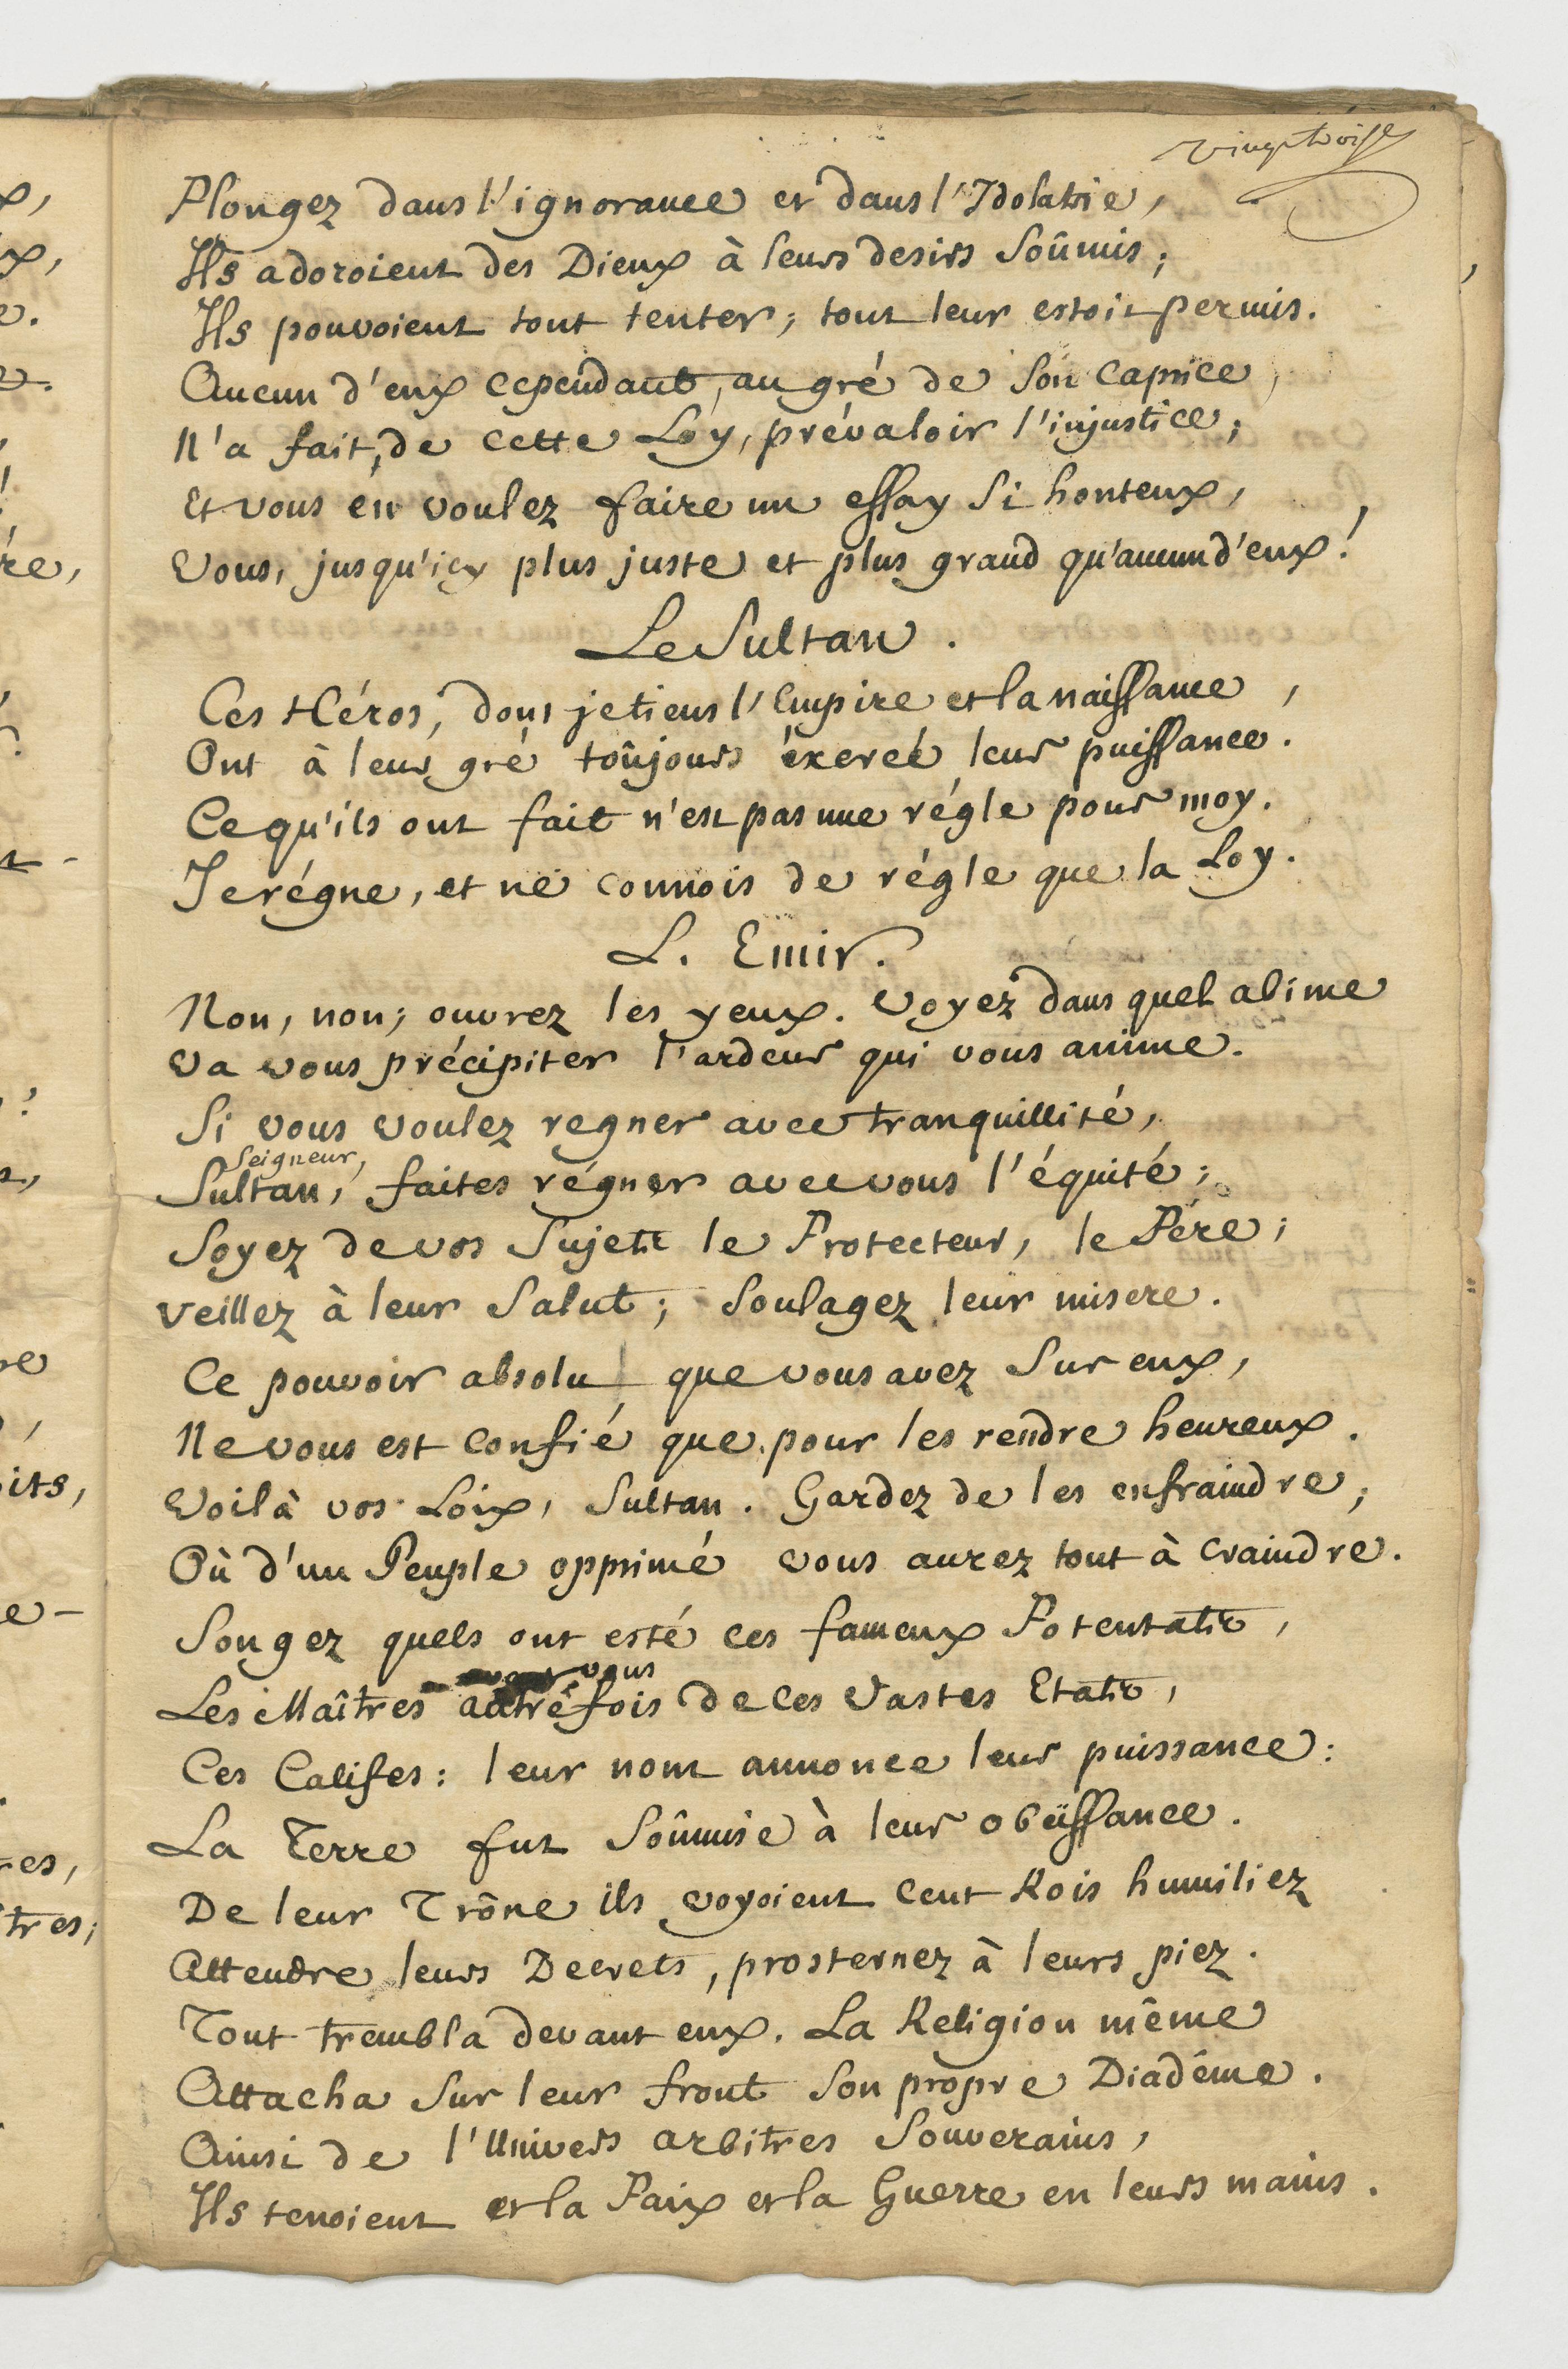 vingt trois e
Plongez dans l'ignorance et dans l'Idolatrie,
Ils adoroient des Dieux à leurs desirs soûmis;
Ils pouvoient tout tenter; tout leur estoit permis.
Aucun d'eux cependant, au gré de son caprice,
N'a fait, de cette Loy, prévaloir l'injustice;
Et vous en voulez faire un essay si honteux,
Vous, jusqu'icy plus juste et plus grand qu'aucun d'eux!
Le Sultan.
Ces Héros, dont je tiens l'Empire et la naissance,
Ont à leur gré toûjours éxercé leur puissance.
Ce qu'ils ont fait n'est pas une régle pour moy.
Je régne, et ne connois de régle que la Loy.
L. Emir.
Non, non; ouvrez les yeux. Voyez dans quel abime
Va vous précipiter l'ardeur qui vous anime.
Si vous voulez regner avec tranquillité,
Seigneur,
Sultan, faites régner avec vous l'équité;
Soyez de vos Sujets le Protecteur, le Pére;
Veillez à leur Salut; Soulagez leur misere.
Ce pouvoir absolu que vous avez sur eux,
Ne vous est confié que pour les rendre heureux.
Voilà vos Loix, Sultan. Gardez de les enfraindre;
Où d'un Peuple opprimé vous aurez tout à craindre.
Songez quels ont esté ces fameux Potentats,
vous
Les Maîtres autrefois de ces Vastes Etats,
Ces Califes: leur nom annonce leur puissance:
La Terre fut Soûmise à leur obéissance.
De leur Trône ils voyoient cent Rois humiliez
Attendre leurs Decrets, prosternez à leurs piez.
Tout trembla devant eux. La Religion même
Attacha sur leur front son propre Diadéme.
Ainsi de l'Univers arbitres Souverains,
Ils tenoient et la Paix et la Guerre en leurs mains.